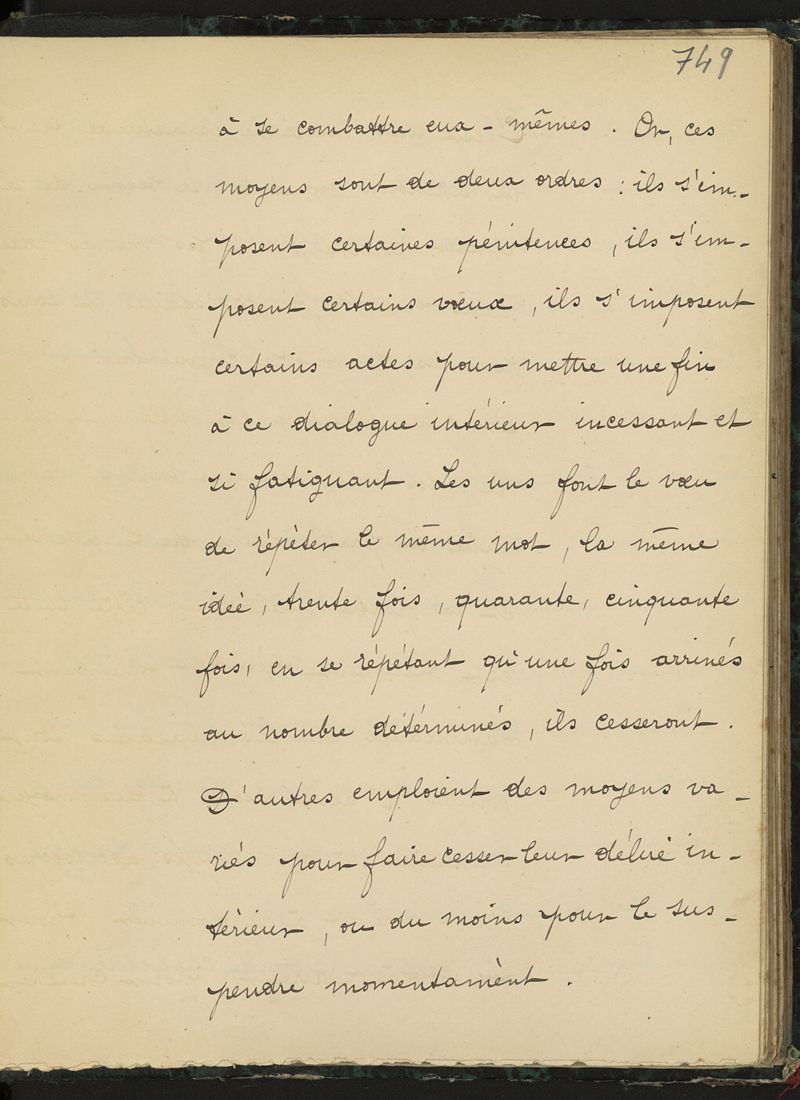 749
à se combattre eux-mêmes. Or, ces
moyens sont de deux ordres : ils s'im-
posent certaines pénitences, ils s'im-
posent certains vœux, ils s'imposent
certains actes pour mettre une fin
à ce dialogue intérieur incessant et
si fatiguant. Les uns font le vœu
de répèter le même mot, la même
ideé, trente fois, quarante, cinquante
fois, en se répétant qu'une fois arrivés
au nombre détérminés, ils cesseront.
D'autres emploient des moyens va-
riés pour faire cesser leur délire in-
térieur, ou du moins pour le sus-
pendre momentamènt.